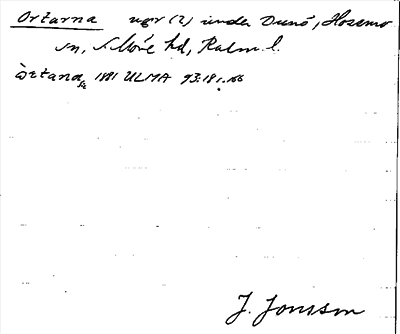 Ortarna ugr (2) under Dunö, Hossmo
sn, S. Möre hd, Kalm. l.
1881 ULMA 93:18 s. 66
J. Jonsson